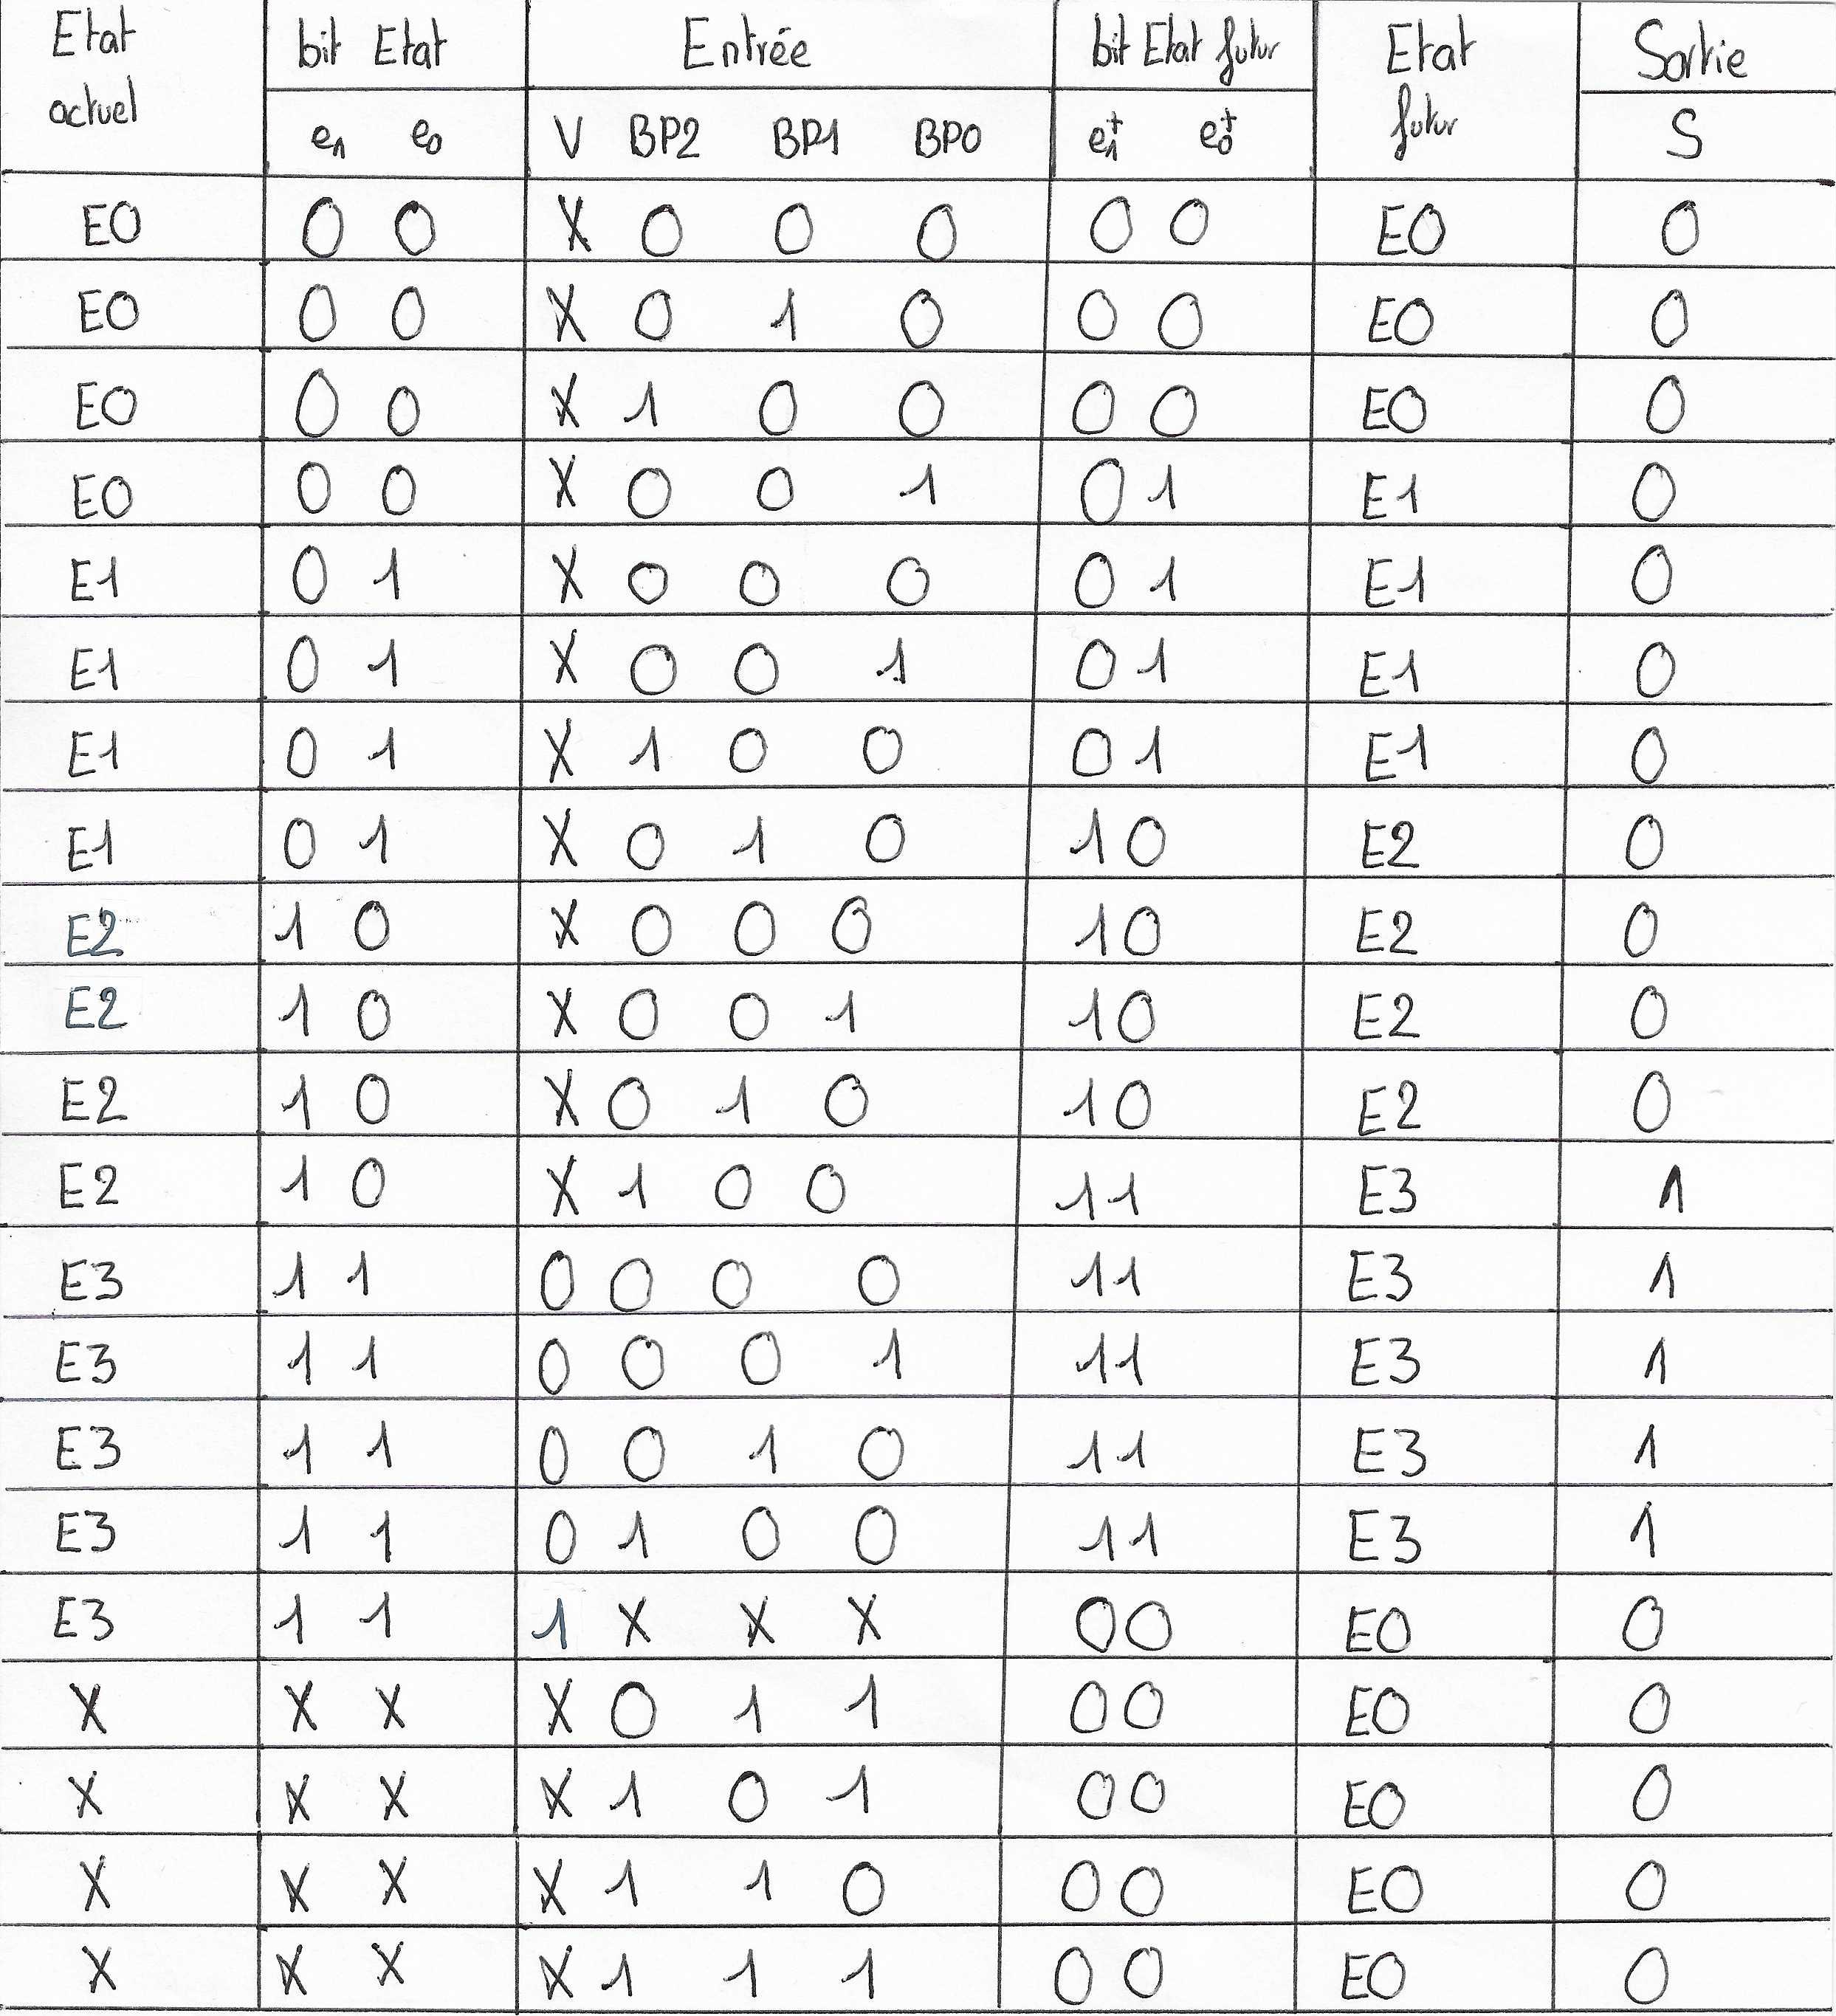 Etat actuel bit Etat Entrée bit Etat futur Etat futur Sortie
e1 e0 V BP2 BP1 BP0 e1+ e0+ S
E0 0 0 X 0 0 0 0 0 E0 0
E0 0 0 X 0 1 0 0 0 E0 0
E0 0 0 X 1 0 0 0 0 E0 0
E0 0 0 X 0 0 1 0 1 E1 0
E1 0 1 X 0 0 0 0 1 E1 0
E1 0 1 X 0 0 1 0 1 E1 0
E1 0 1 X 1 0 0 0 1 E1 0
E1 0 1 X 0 1 0 1 0 E2 0
E2 1 0 X 0 0 0 1 0 E2 0
E2 1 0 X 0 0 1 1 0 E2 0
E2 1 0 X 0 1 0 1 0 E2 0
E2 1 0 X 1 0 0 1 1 E3 1
E3 1 1 0 0 0 0 1 1 E3 1
E3 1 1 0 0 0 1 1 1 E3 1
E3 1 1 0 0 1 0 1 1 E3 1
E3 1 1 0 1 0 0 1 1 E3 1
E3 1 1 1 X X X 0 0 E0 0
X X X X 0 1 1 0 0 E0 0
X X X X 1 0 1 0 0 E0 0
X X X X 1 1 0 0 0 E0 0
X X X X 1 1 1 0 0 E0 0